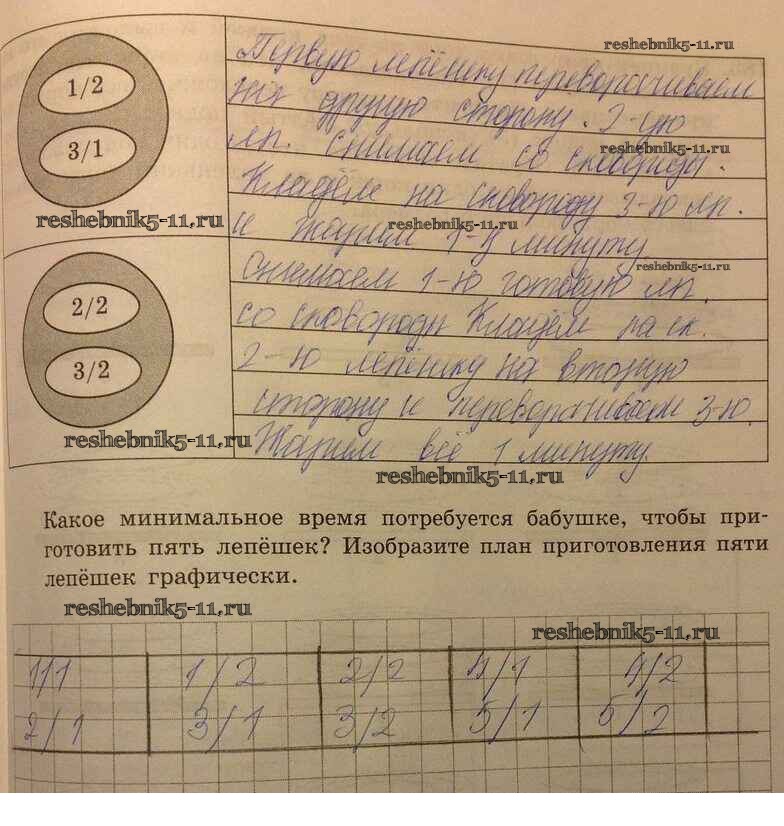 reshebnik5-11.ru
1/2
3/1
reshebnik5-11.ru
Первую лепёшку переворачиваем
на другую сторону. 2-ую
reshebnik5-11.ru
лп. снимаем со сковороды.
Кладём на сковороду 3-ю лп.
reshebnik5-11.ru
и жарим 1-у минуту
reshebnik5-11.ru
2/2
3/2
Снимаем 1-ю готовую лп.
со сковороды Кладём на ск.
2-ю лепёшку на вторую
сторону и переворачиваем 3-ю.
reshebnik5-11.ru
Жарим всё 1 минуту.
reshebnik5-11.ru
Какое минимальное время потребуется бабушке, чтобы при-
готовить пять лепёшек? Изобразите план приготовления пяти
лепёшек графически.
reshebnik5-11.ru
reshebnik5-11.ru
1/1 1/2 2/2 4/1 4/2
2/1 3/1 3/2 5/1 5/2